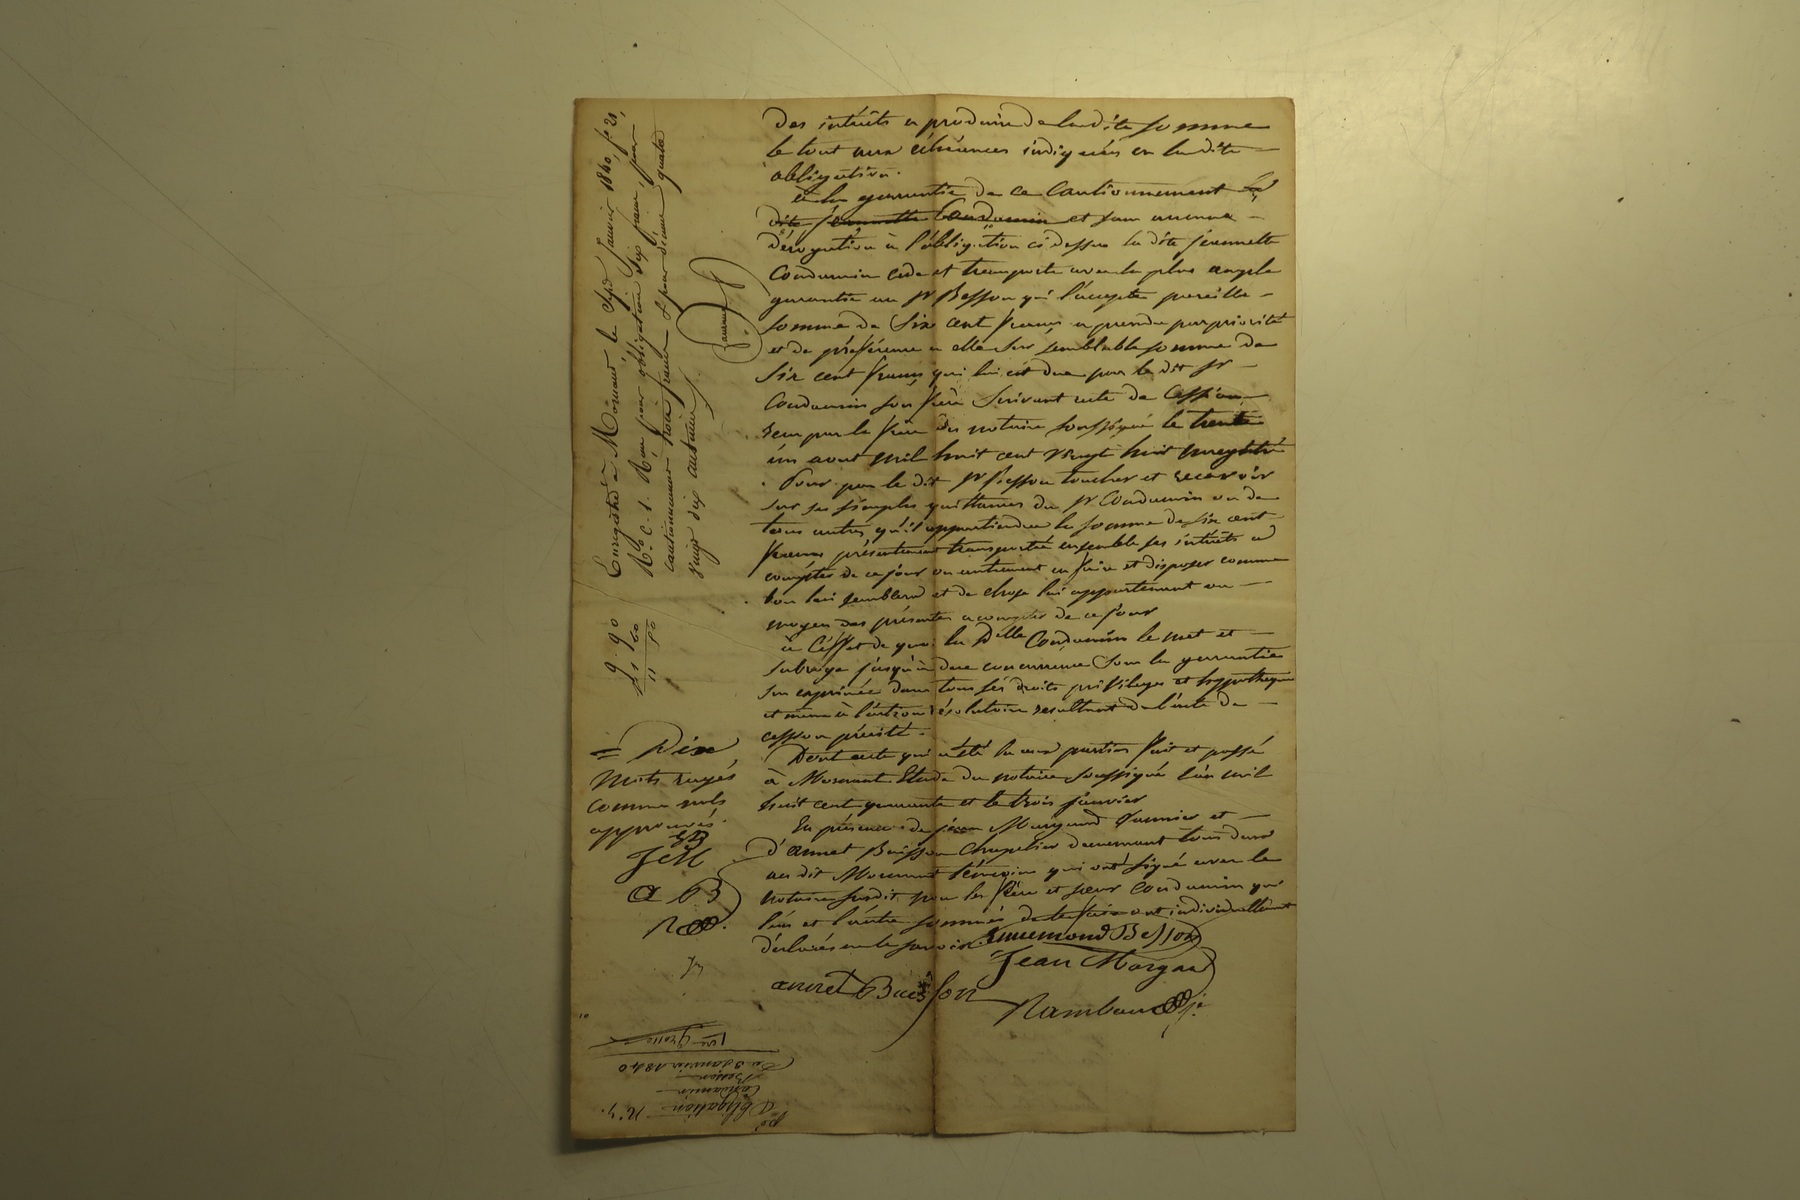 des intérêts a produire de la dite somme
le tout aux échéances indiquées en la dite
obligation.
à la garantie de ce cautionnement la
dite jeannette Condamin et sans aucune
dérogation à l'obligation ci dessus la dite jeannette
Condamin cede et transporte avec la plus ample
garantie au sr Besson qui l'accepte pareille
somme de Six cent francs a prendre par priorité
et de préférence a elle sur semblable somme de
Six cent francs qui lui est due par le dit sr
Condamin son frère Suivant acte de Cession
recu par le frère du notaire soussigné le trente
un aout mil huit cent vingt huit enregistré
Pour par le dit sr Besson toucher et recevoir
sur ses simples quittances du sr Condamin ou de
tous autres qu'il appartiendra la somme de six cent
francs présentement transportée ensemble ses intérêts a
compter de ce jour ou autrement en faire et disposer comme
bon lui semblera et de chose lui appartenant au
moyen des présentes a compter de ce jour
à l'éffet de quoi la Delle Condamin le met et
subroge jusqu'à due concurrence Sous la garantie
sus exprimée dans tous ses droits privileges et hypotheques
et même à l'action résolutoire resultant de l'acte de
cession précité.
Dont acte qui a été lu aux parties fait et passé
à Mornant Etude du notaire soussigné l'an mil
huit cent quarante et le trois janvier
En présence de jean Margand et
d'annet Buisson Chapelier demeurant tous deux
au dit Mornant témoins qui ont signé avec le
notaire susdit non les frère et sœur Condamin qui
l'un et l'autre sommés de le faire ont individuellement
déclarés ne le savoir. Ennemond Besson
Jean Margand
annet Buisson
Rambaud
Enregistré à Mornant le Sept Janvier 1840, fo 21,
Ro C. 1. Reçu pour obligation Six francs, pour
cautionnement trois francs & pour décime quatre
vingt dix centimes
9 90
1 60
11 50
= Dix
mots rayés
comme nuls
approuvés.
EB
JM
a B
R
Obligation No 3.
Condamin
Besson
Du 3 Janvier 1840
1ere Grosse